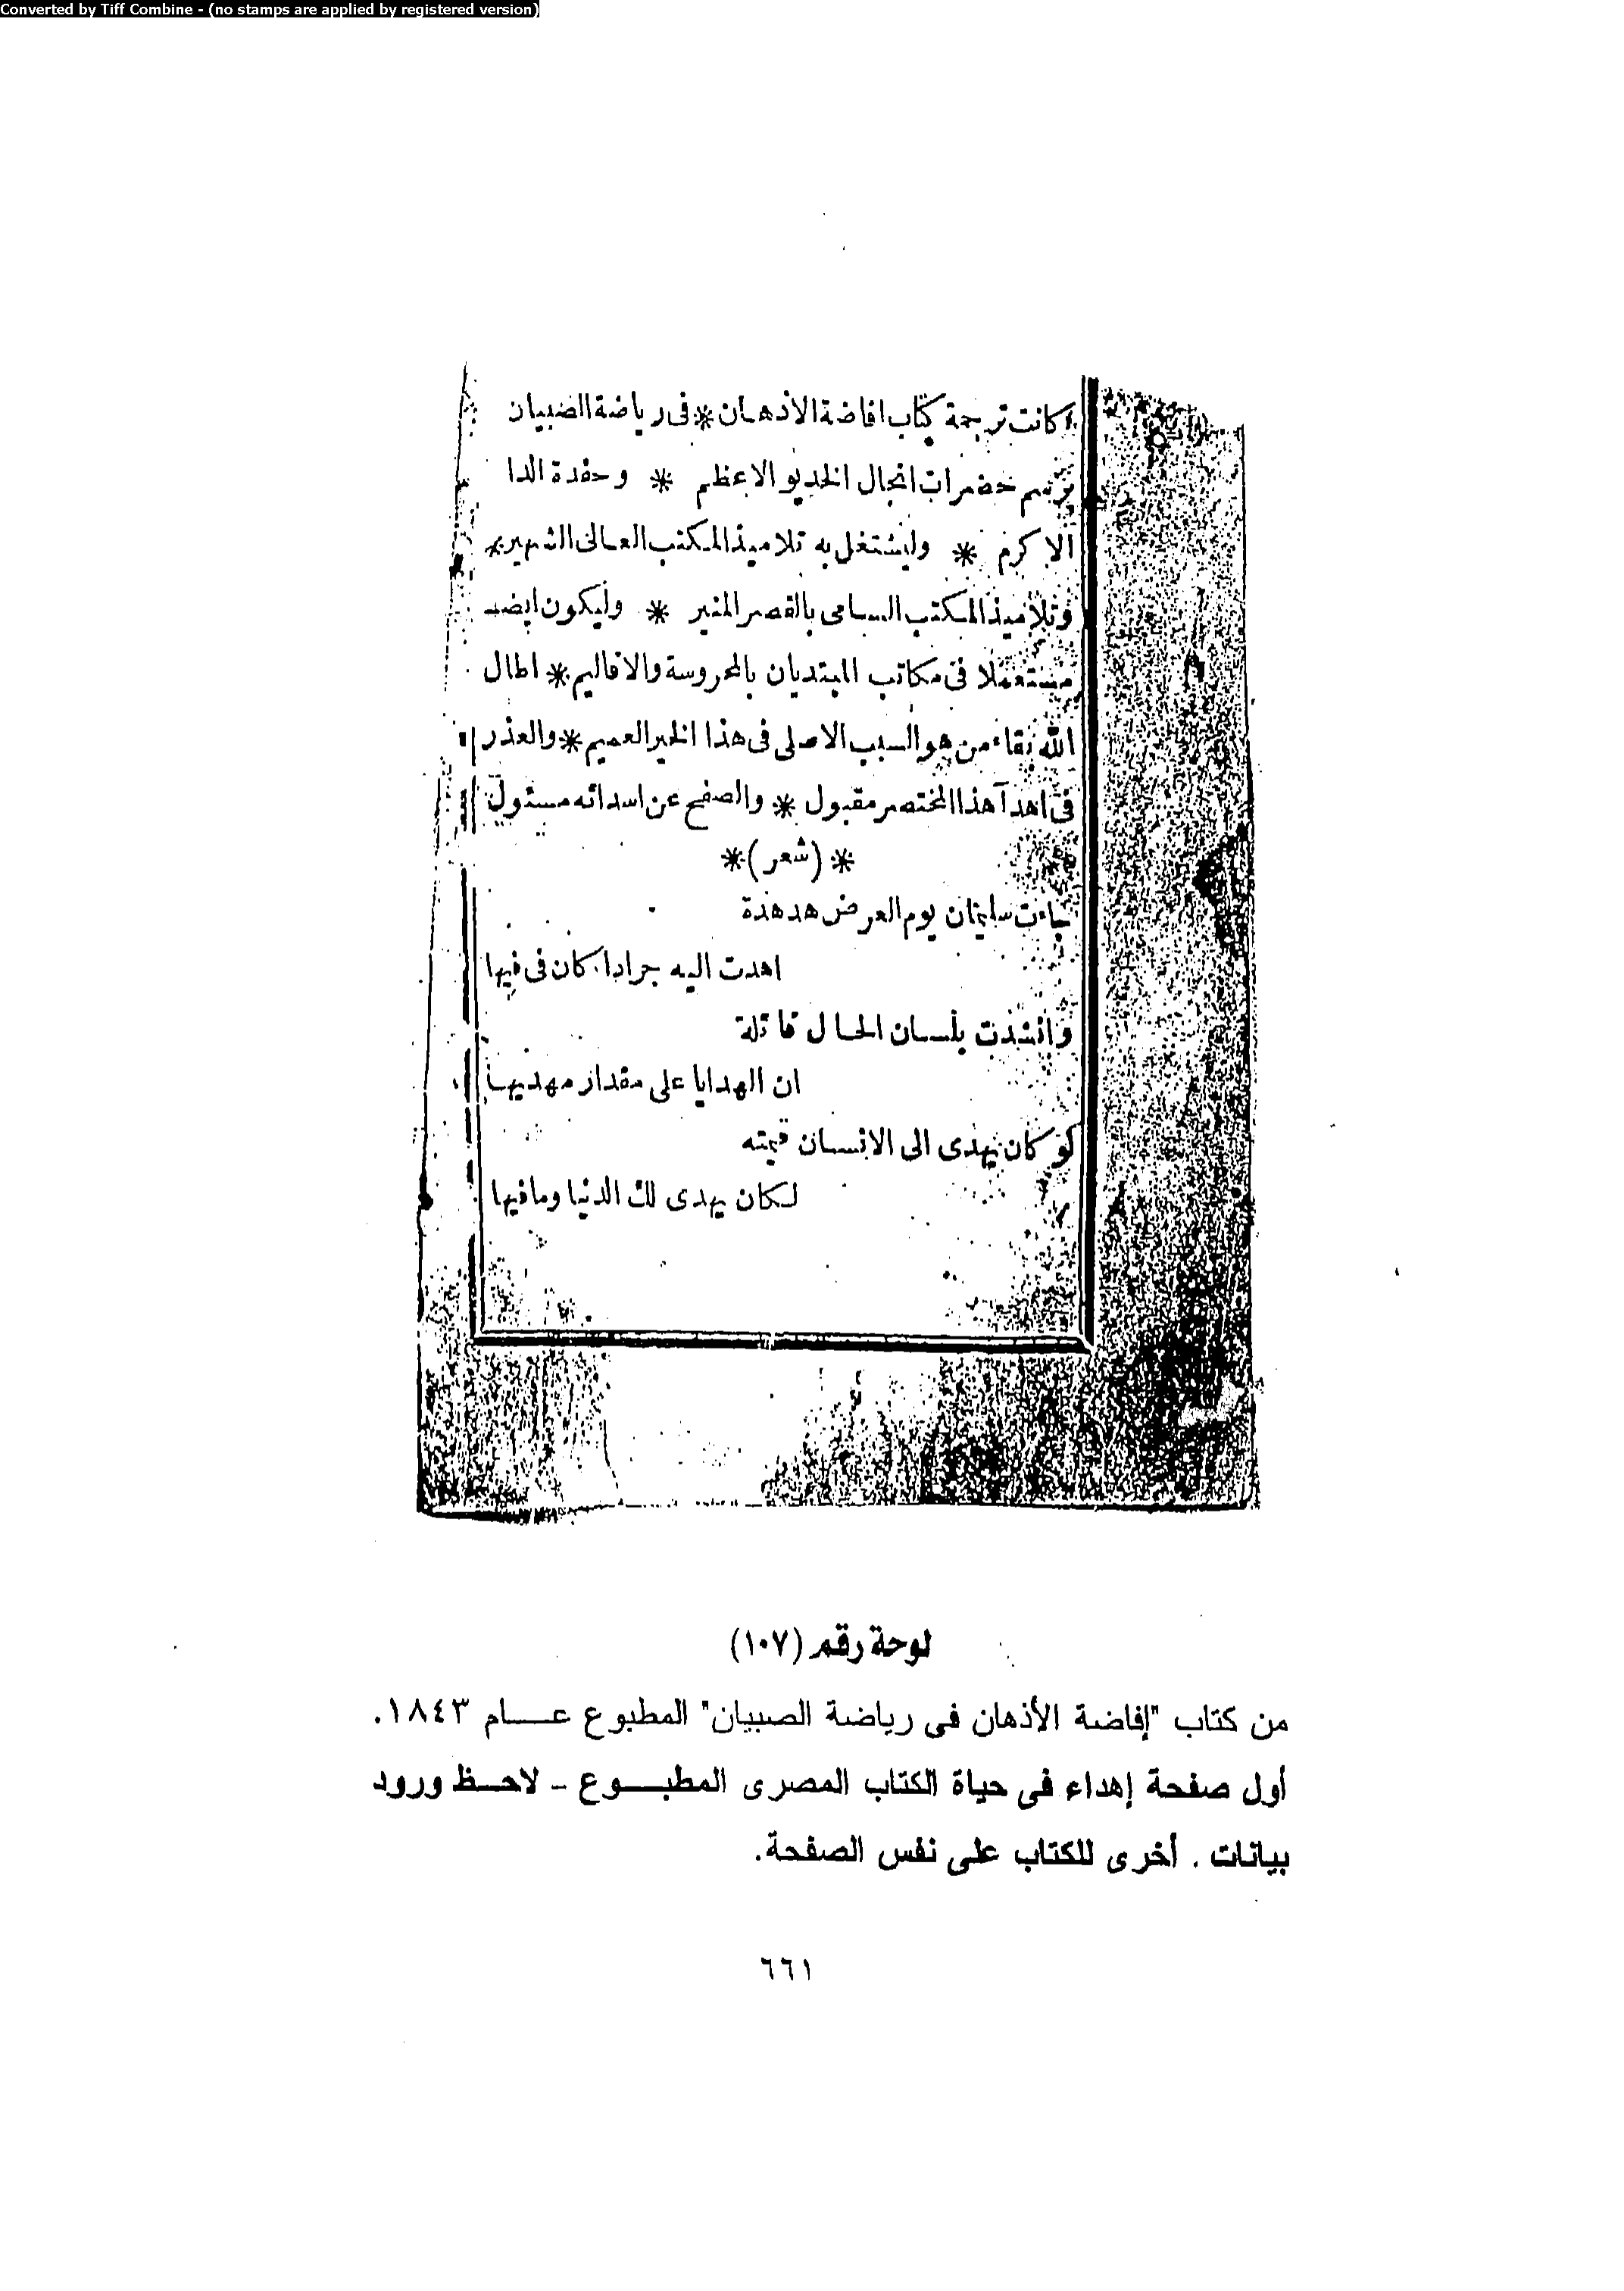 Converted by Tiff Combine - (no stamps are applied by registered version)
كانت ترجمة كتاب افاضة الاذهان * فى رياضة الصبيان
برسم حضرات انجال الخديو الاعظم * وحفدة الدا
الاكرم * وليشتغل به تلاميذ المكتب العالى الشهير *
وتلاميذ المكتب السامى بالقصر المنير * وليكون ايضـ
مستعملا فى مكاتب المبتديان بالمحروسة والاقاليم * اطال
الله بقاء من هو السبب الاصلى فى هذا الخير العميم * والعذر
فى اهدآ هذا المختصر مقبول * والصفح عن اسدائه مسئول
* (شعر) *
جاءت سليمان يوم العرض هدهدة
اهدت اليه جرادا كان فى فيها
وانشدت بلسان الحال قائلة
ان الهدايا على مقدار مهديها
لو كان يهدى الى الانسان قيمته
لكان يهدى لك الدنيا ومافيها
لوحة رقم (١٠٧)
من كتاب "إفاضة الأذهان فى رياضة الصبيان" المطبوع عـــام ١٨٤٣.
أول صفحة إهداء فى حياة الكتاب المصرى المطبـــوع - لاحــظ ورود
بيانات . أخرى للكتاب على نفس الصفحة.
٦٦١